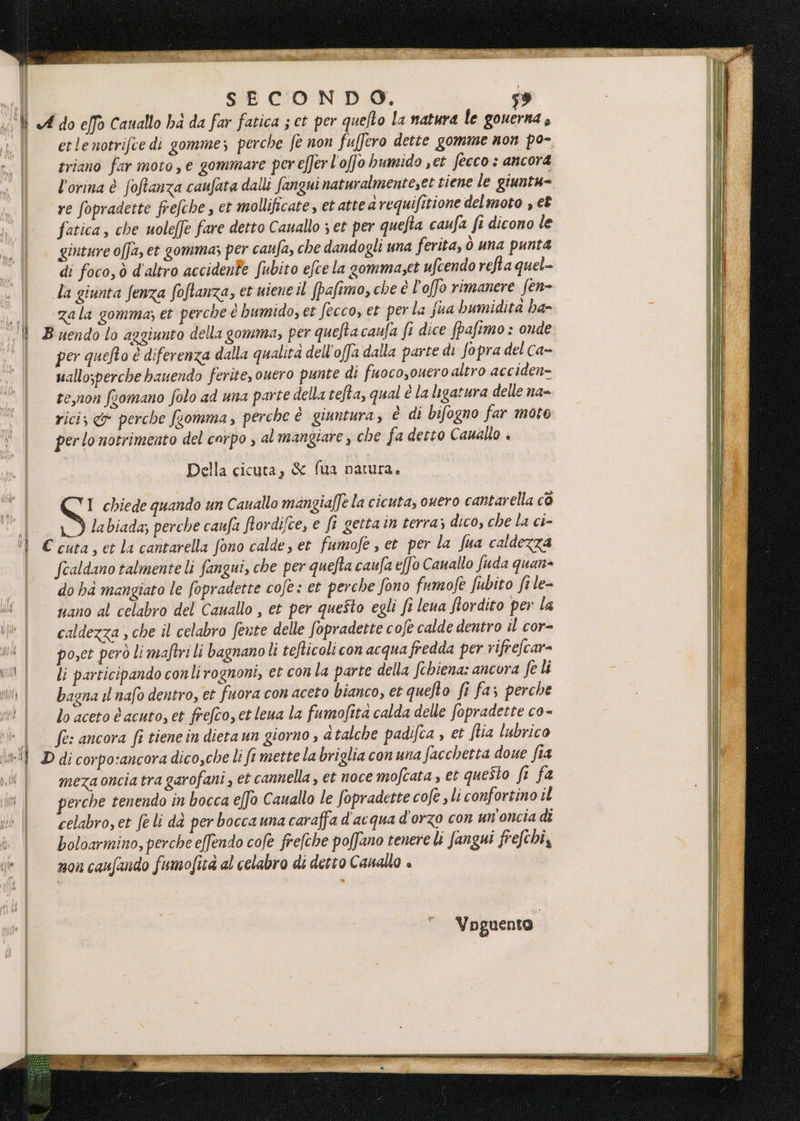 SECONDO. 59
A do esso Cauallo hà da far fatica ; et per questo la natura le gouerna,
et le notrisce di gomme; perche se non fussero dette gomme non po-
triano far moto, e gommare per esser l'osso humido, et secco : ancora
l'orina è sostanza causata dalli sangui naturalmente, et tiene le giuntu-
re sopradette fresche, et mollificate, et atte a requisitione del moto, et
fatica, che uolesse fare detto Cauallo ; et per questa causa si dicono le
ginture ossa, et gomma; per causa, che dandogli una ferita, ò una punta
di foco, ò d'altro accidente subito esce la gomma, et uscendo resta quel-
la giunta senza sostanza, et uiene il spasimo, che è l'osso rimanere sen-
za la gomma; et perche è humido, et secco, et per la sua humidità ha-
B uendo lo aggiunto della gomma, per questa causa si dice spasimo : onde
per questo è diferenza dalla qualità dell'ossa dalla parte di sopra del Ca-
uallo; perche hauendo ferite, ouero punte di fuoco, ouero altro acciden-
te, non sgomano solo ad una parte della testa, qual è la ligatura delle na-
rici; & perche sgomma, perche è giuntura, è di bisogno far moto
per lo notrimento del corpo, al mangiare, che fa detto Cauallo.
Della cicuta, & sua natura.
SI chiede quando un Cauallo mangiasse la cicuta, ouero cantarella cō
la biada; perche causa stordisce, e si getta in terra; dico, che la ci-
C cuta, et la cantarella sono calde, et fumose, et per la sua caldezza
scaldano talmente li sangui, che per questa causa esso Cauallo suda quan-
do hà mangiato le sopradette cose : et perche sono fumose subito si le-
uano al celabro del Cauallo, et per questo egli si leua stordito per la
caldezza, che il celabro sente delle sopradette cose calde dentro il cor-
po, et però li mastri li bagnano li testicoli con acqua fredda per rifrescar-
li participando con li rognoni, et con la parte della schiena: ancora se li
bagna il naso dentro, et fuora con aceto bianco, et questo si fa; perche
lo aceto è acuto, et fresco, et leua la fumosità calda delle sopradette co-
se: ancora si tiene in dieta un giorno, à talche padisca, et stia lubrico
D di corpo: ancora dico, che li si mette la briglia con una sacchetta doue sia
meza oncia tra garofani, et cannella, et noce moscata, et questo si fa
perche tenendo in bocca esso Cauallo le sopradette cose, li confortino il
celabro, et se li dà per bocca una caraffa d'acqua d'orzo con un'oncia di
boloarmino, perche essendo cose fresche possano tenere li sangui freschi,
non causando fumosità al celabro di detto Cauallo.
Vnguento